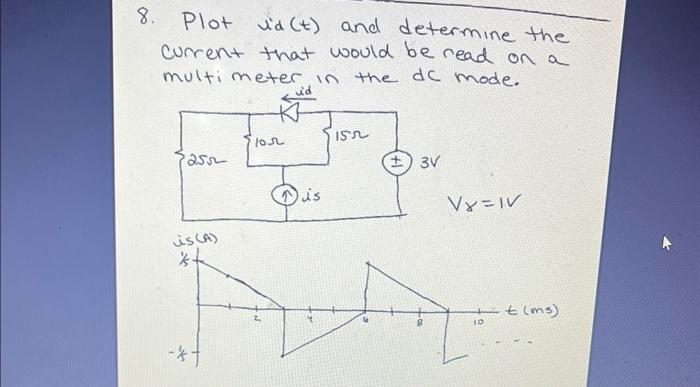 8. Plot id(t) and determine the
current that would be read on a
multimeter in the dc mode.
id
10Ω
15Ω
25Ω
± 3V
is
Vγ=1V
is(A)
1/5
2 4 6 8 10 t(ms)
-1/5
....